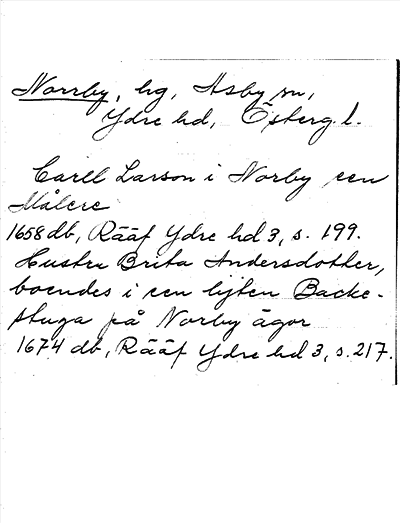 Norrby, hg, Asby sn,
Ydre hd, Österg. l.
Carell Larson i Norby een
Målere
1658 db, Rääf Ydre hd 3, s. 199.
Hustru Brita Andersdotter,
boendes i een lijten Backe-
stuga på Norby ägor
1674 db, Rääf Ydre hd 3, s. 217.